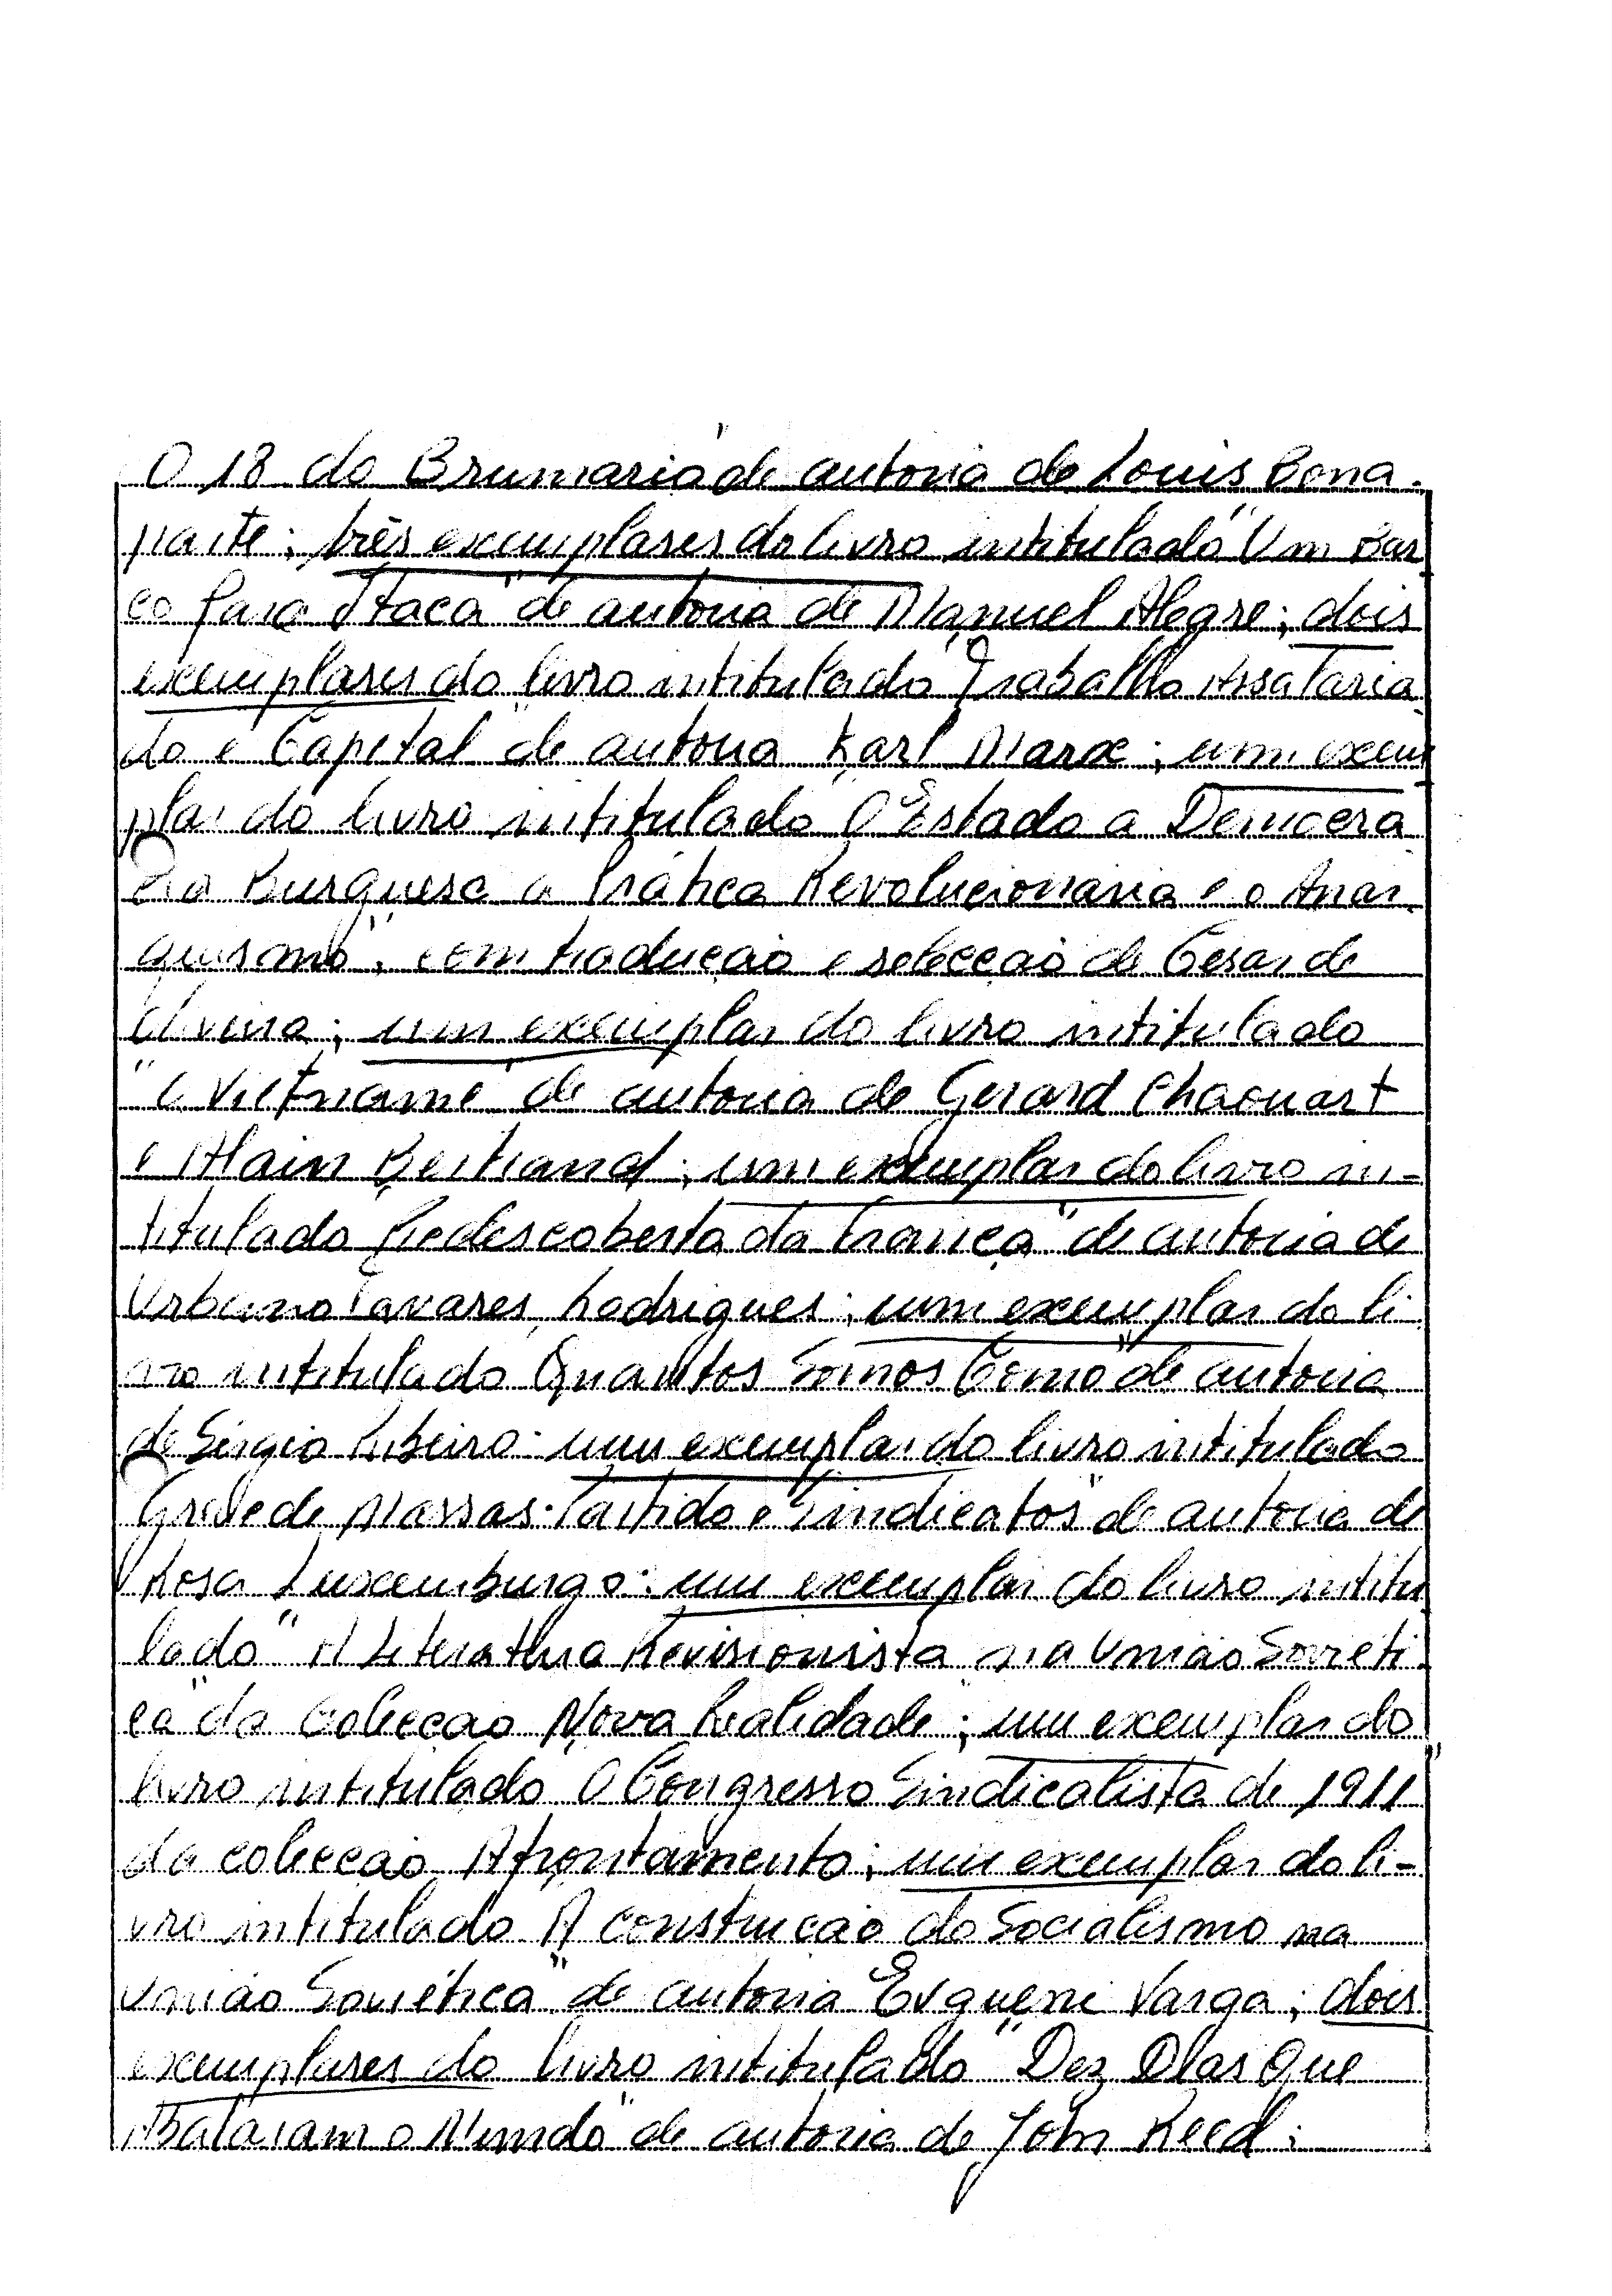 O 18 do Brumario de autoria de Louis Bona-
parte; três exemplares do livro intitulado "Um Bar
co para Itaca" de autoria de Manuel Alegre; dois
exemplares do livro intitulado "Trabalho Assalaria
do e Capital" de autoria Karl Marx; um exem
plar do livro intitulado "O Estado a Democra
cia Burguesa a Prática Revolucionaria e o Anar
quismo", com traducção e selecção de Cesar de
Oliveira; um exemplar do livro intitulado
"O Vietname" de autoria de Gerard Chaouart
e Alain Bertrand; um exemplar do livro in-
titulado "Redescoberta da França" de autoria de
Urbano Tavares Rodrigues; um exemplar do li
vro intitulado Quantos Somos Como" de autoria
de Sérgio Ribeiro; um exemplar do livro intitulado
Greve de Massas-Partido e Sindicatos" de autoria de
Rosa Luxemburgo; um exemplar do livro intitu
lado "A Literatura Revisionista na União Sovieti
ca" da colecção Nova Realidade; um exemplar do
livro intitulado O Congresso Sindicalista de 1911"
da colecção Afrontamento; um exemplar do li-
vro intitulado A construcão do Socialismo na
União Soviética" de autoria Evgueni Varga; dois
exemplares do livro intitulado "Dez Dias Que
Abalaram o Mundo" de autoria de John Reed;